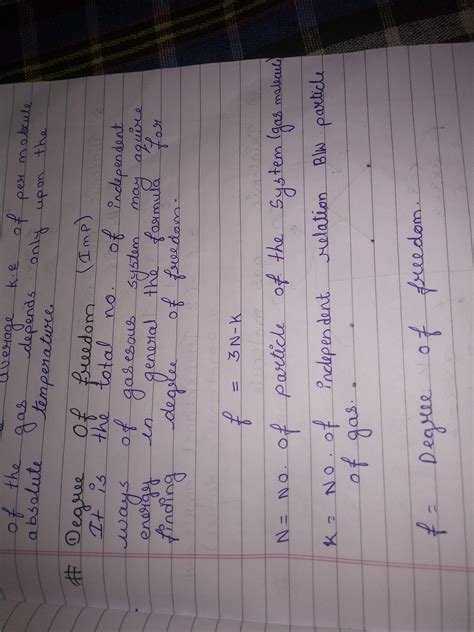 average k.e of per molecule
of the gas depends only upon the
absolute temperature.
# Degree of freedom (Imp)
It is the total no. of independent
ways of gaseous system may aquire
energy in general the formula for
finding degree of freedom.
f = 3N-K
N = No. of particle of the system (gas molecule)
K = No. of independent relation B/w particle
of gas.
f = Degree of freedom.